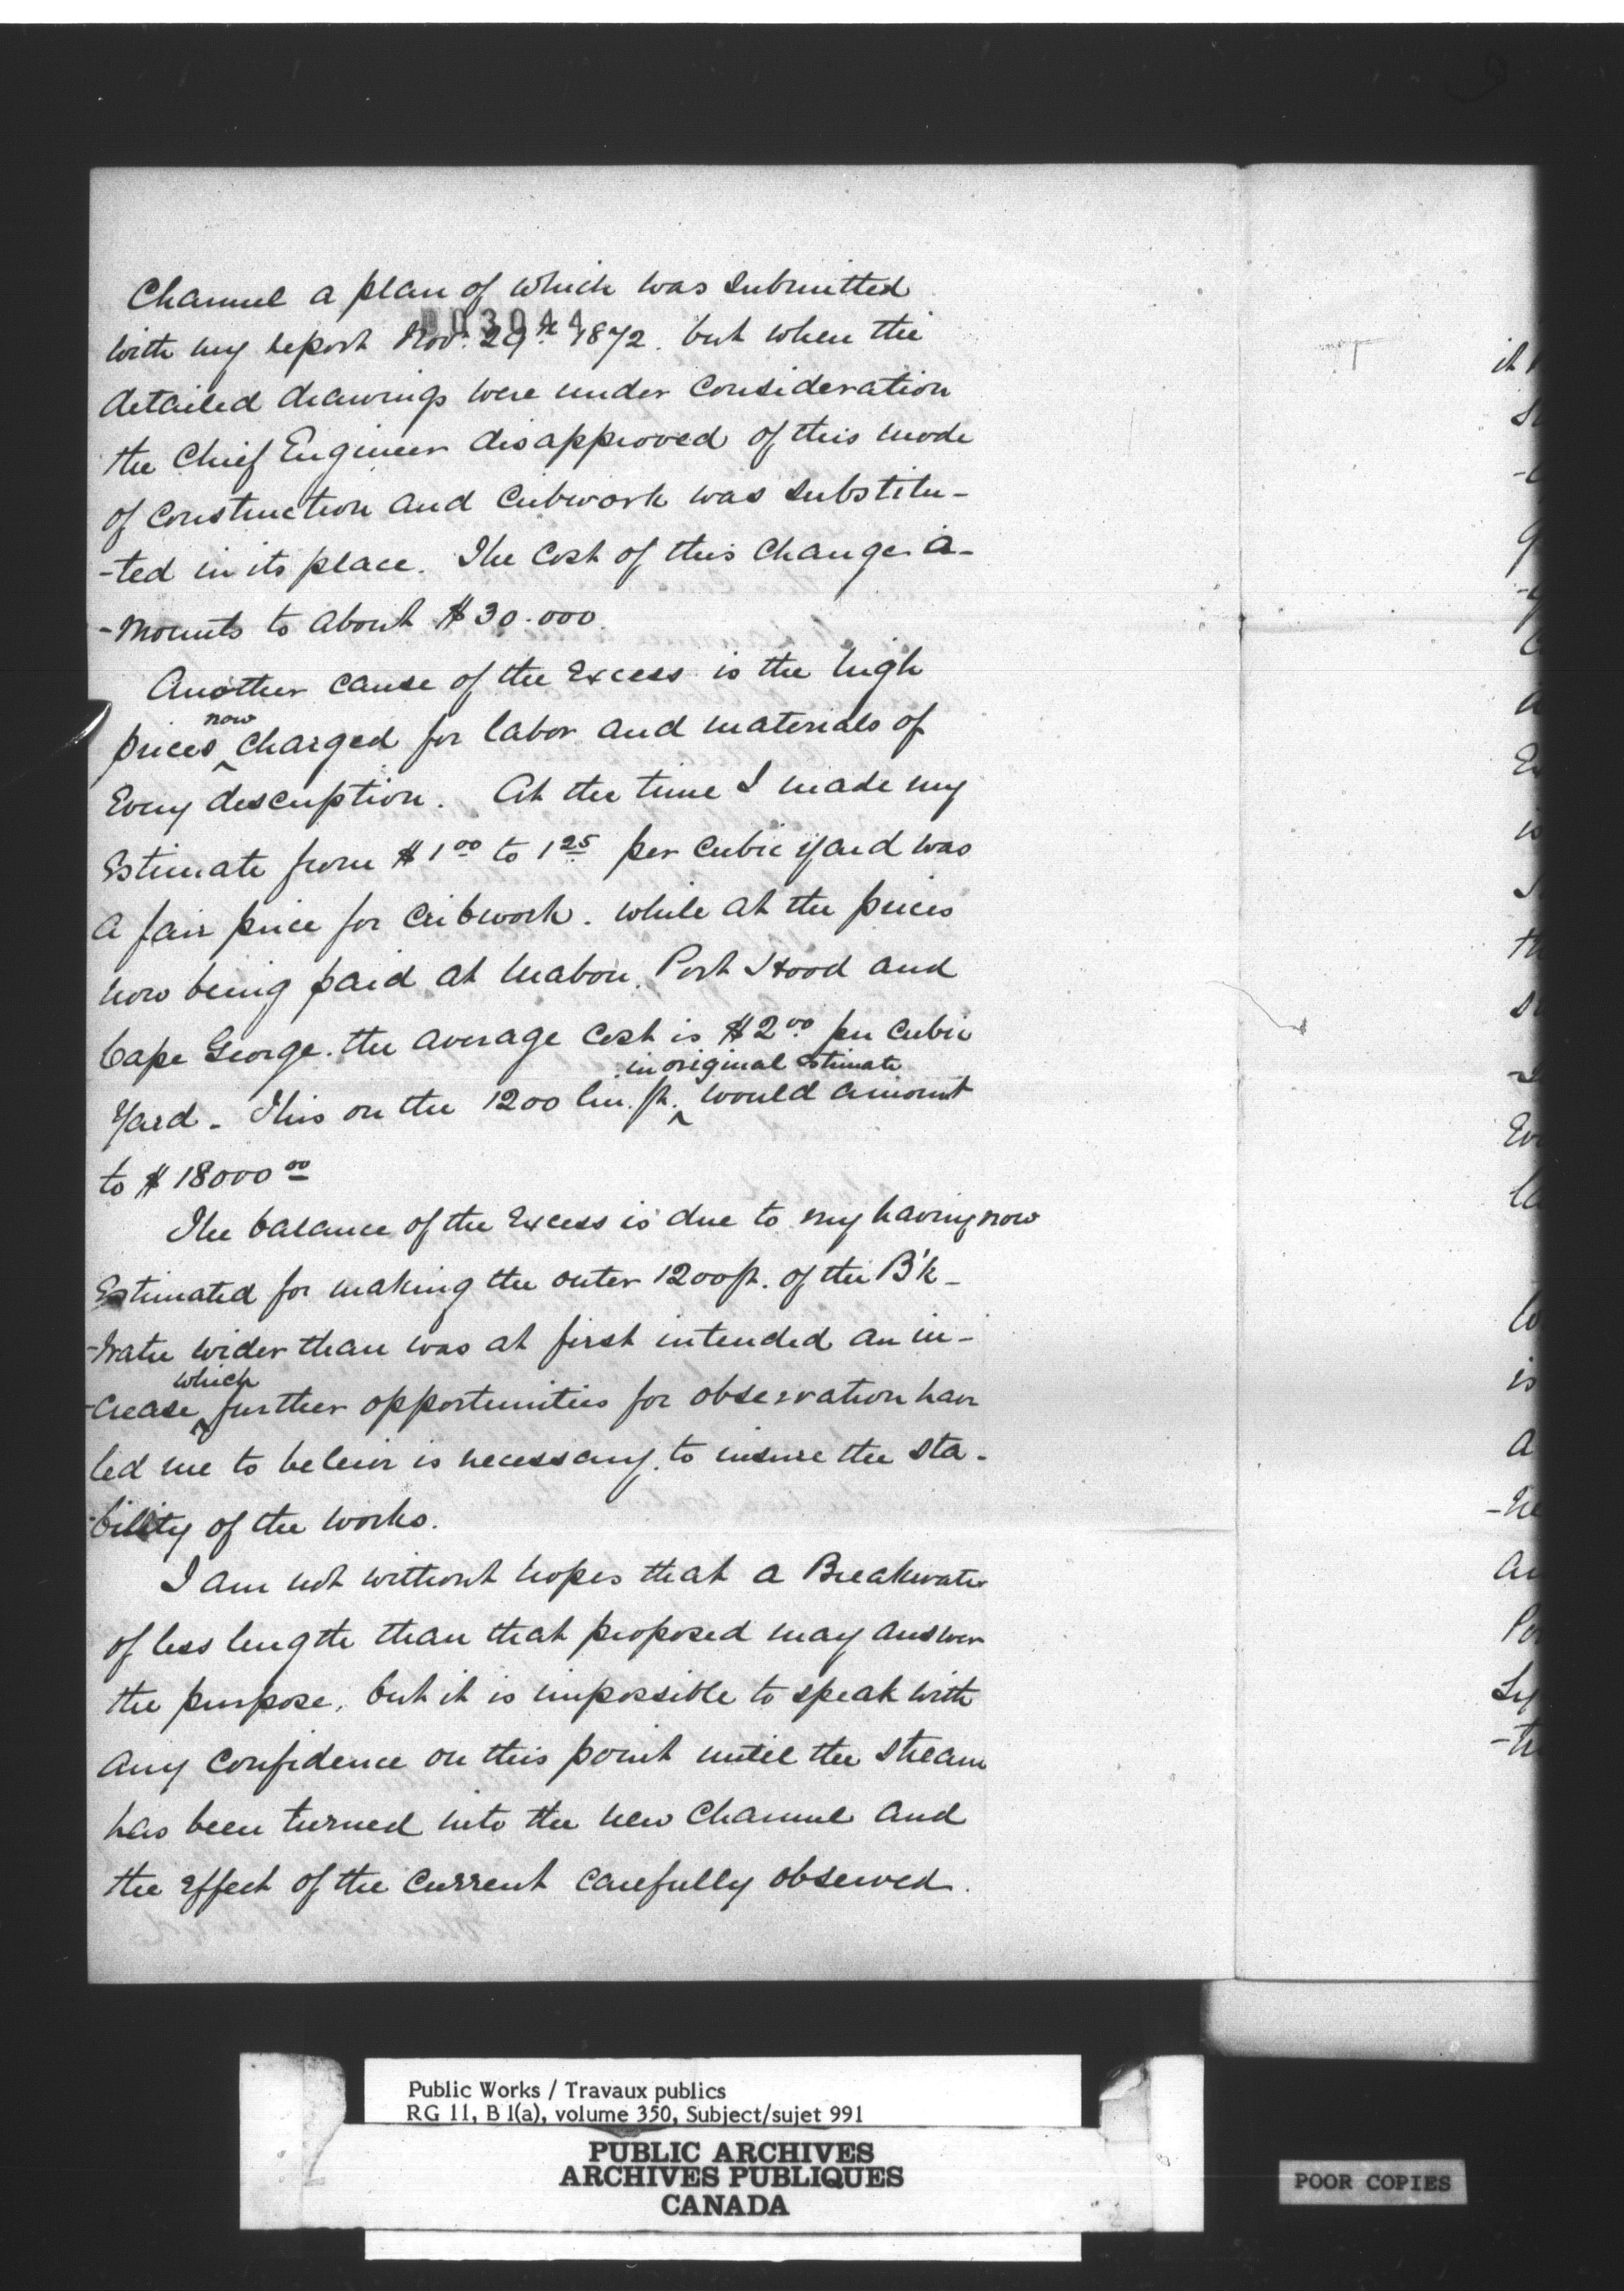 Channel a plan of which was submitted
003044
with my report Nov. 29th 1872. but when the
detailed drawings were under consideration
the Chief Engineer disapproved of this mode
of construction and Cribwork was substitu-
-ted in its place. The Cost of this change a-
-mounts to about $30.000.
Another cause of the Excess is the high
now
prices ^ charged for labor and materials of
Every description. At the time I made my
Estimate from $1 00 to 1 25 per Cubic yard was
a fair price for Cribwork. while at the prices
now being paid at Mabou, Port Hood and
Cape George. the average Cost is $2 00 per Cubic
in original Estimate
Yard - This on the 1200 lin. ft. ^ would amount
to $18000 00
The balance of the Excess is due to my having now
Estimated for making the outer 1200 ft. of the B'k-
-water wider than was at first intended an in-
which
-crease ^ further opportunities for observation have
led me to believe is necessary. to insure the sta-
-bility of the works.
I am not without hopes that a Breakwater
of less length than that proposed may answer
the purpose, but it is impossible to speak with
any Confidence on this point until the stream
has been turned into the new Channel and
the Effect of the Current carefully observed.
it
Public Works / Travaux publics
RG 11, B 1(a), volume 350, Subject/sujet 991
PUBLIC ARCHIVES
ARCHIVES PUBLIQUES
CANADA
POOR COPIES